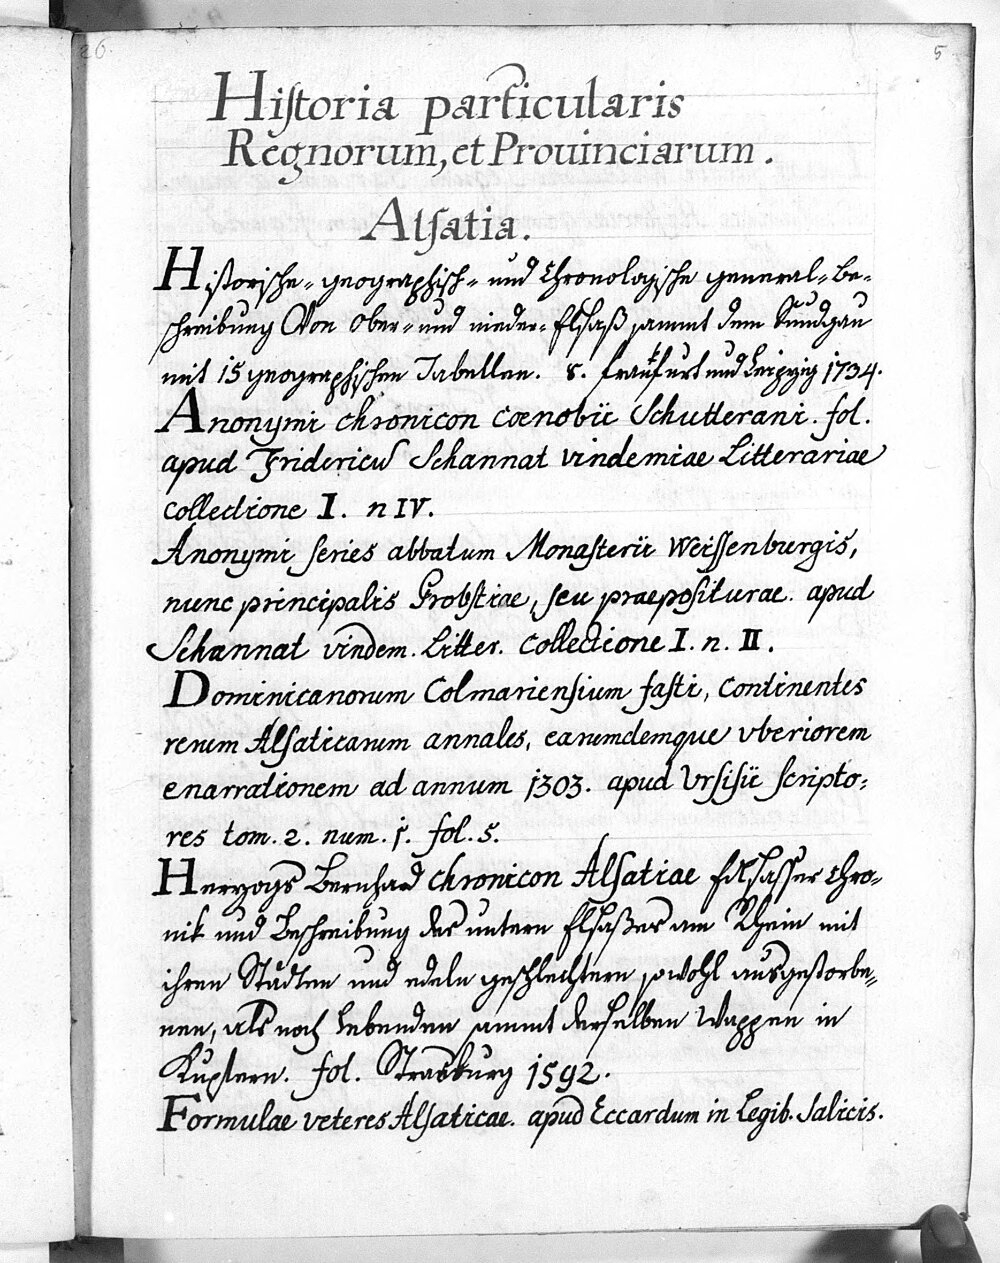 26.
5
Historia particularis
Regnorum, et Prouinciarum.
Alsatia.
Historische- geographisch- und Chronologische general- Be-
schreibung Von Ober- und nieder- Elsaß sammt dem Sundgau
mit 15 geographischen Tabellen. 8. Frankfurt und Leipzig 1734.
Anonymi chronicon coenobii Schutterani. fol.
apud Fridericū Schannat vindemiae Litterariae
collectione I. n IV.
Anonymi series abbatum Monasterii Weissenburgis,
nunc principalis Probstiae, seu praepositurae. apud
Schannat vindem. Litter. collectione I. n. II.
Dominicanorum Colmariensium fasti, continentes
rerum Alsaticarum annales, earumdemque vberiorem
enarrationem ad annum 1303. apud Vrsisii scripto-
res tom. 2. num. 1. fol. 5.
Herzogs Bernhard chronicon Alsatiae Elsasser Chro-
nik und Beschreibung des untern Elsaßes am Rhein mit
ihren Städten und edeln geschlechtern, sowohl ausgestorbe-
nen, als noch lebenden sammt derselben Wappen in
Kupfern. fol. Strasburg 1592.
Formulae veteres Alsaticae. apud Eccardum in Legib. Salicis.